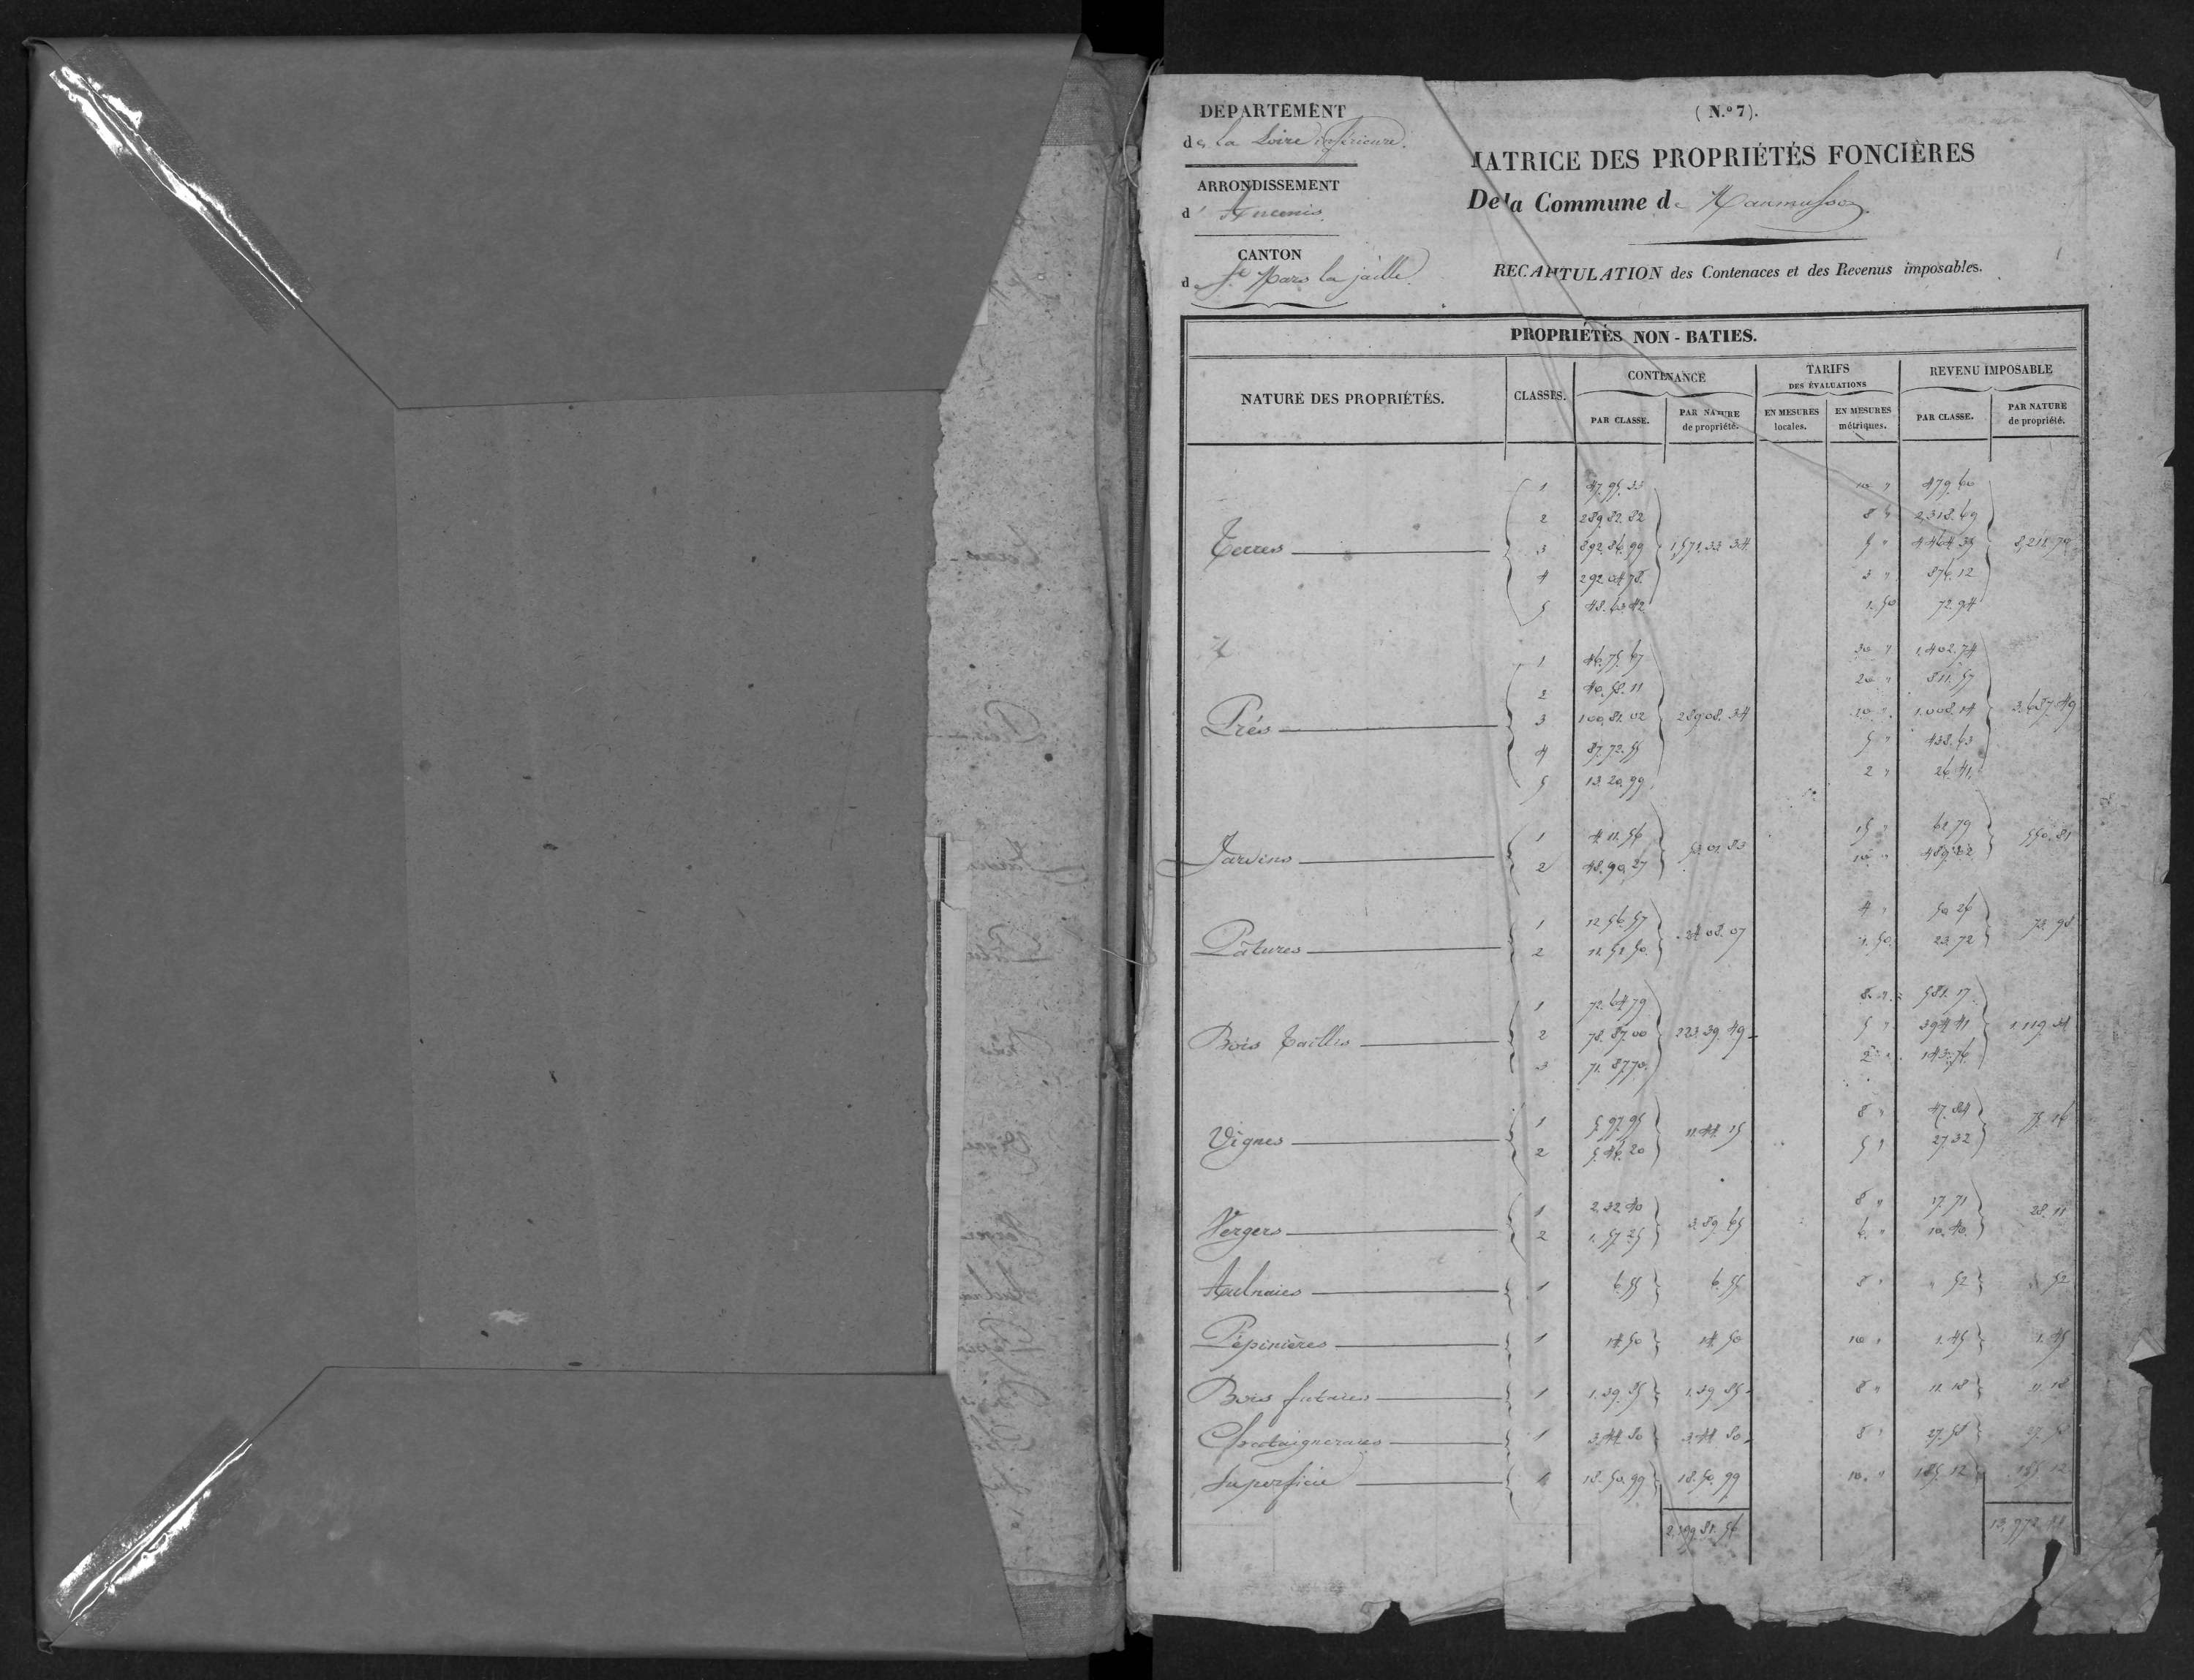 DEPARTEMENT
de la Loire inférieure.
ARRONDISSEMENT
d' Ancenis.
CANTON
de St Mars la jaille.
( N.º 7).
MATRICE DES PROPRIÉTÉS FONCIÈRES
De la Commune de Maumusson
RECAPITULATION des Contenaces et des Revenus imposables.
PROPRIÉTÉS NON - BATIES.
NATURE DES PROPRIÉTÉS. CLASSES. CONTENANCE TARIFS DES ÉVALUATIONS REVENU IMPOSABLE
PAR CLASSE. PAR NATURE de propriété. EN MESURES locales. EN MESURES métriques. PAR CLASSE. PAR NATURE de propriété.
1 47.95.33 10 " 479.60
2 289.82.82 8 " 2,318.69
Terres 3 892.86.99 1,571.33 34 5 " 4464.35 8,211.79
4 292.04.78. 3 " 876.12
5 48.63.42 1.50 72.94
1 46.75.67 30 " 1,402.74
2 40.58.11 20 " 811.57
Prés 3 100.81.02 289.08.34 10 " 1.008.14 3.687.49
4 87.72.55 5 " 438.63
5 13.20.99 2 " 26.41.
Jardins 1 4 11.56 53 01 83 15 " 61.79 550.81
2 48.90.27 10 " 489.02
Pâtures 1 12.56.57 4 " 50.26 73.98
2 1.50 23.72
1 72.64.79 8 " 581.17
Bois Taillis 2 78.87.00 223.39.49 5 " 394.41 1.119.34
3 71.87.70. 2 " 143.76
Vignes 1 5.97.95 11.44 15 8 " 47.84 75.16
2 5.46.20 5 " 27.32
Vergers 1 2.32.40 3.89.65 8 " 17.71 28.11
2 1.57.25 6. " 10.40
Aulnaies 1 6.55 6.55 8 " " 52 " 52
Pépinières 1 14.50 14.50 10 " 1.45 1.45
Bois futaies 1 1.39.85 1.39.85 8 " 11.18 11.18
Chataigneraies 1 3.44.80 3.44 80 8 " 27.58 27.58
Superficie 1 18.50.99 18.50.99 10. " 185.12 185 12
2.199.81.56 13,972.